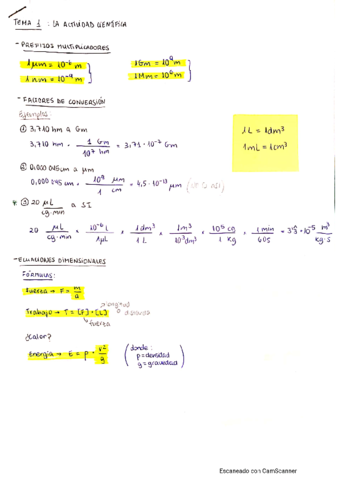 TEMA 1 : LA ACTIVIDAD CIENTÍFICA
- PREFIJOS MULTIPLICADORES
1 μm = 10⁻⁶ m
1 nm = 10⁻⁹ m
1 Gm = 10⁹ m
1 Mm = 10⁶ m
- FACTORES DE CONVERSIÓN
Ejemplos:
① 3.710 hm a Gm
3.710 hm · 1 Gm / 10⁷ hm = 3,71 · 10⁻⁴ Gm
1L = 1dm³
1mL = 1cm³
② 0,000 045 cm a μm
0,000 045 cm · μm / 1 cm = 4,5 · μm
③ 20 μL / cg·min a SI
20 μL / cg·min × 10⁻⁶ L / 1 μL × 1 dm³ / 1 L × 1m³ / 10³ dm³ × cg / 1 kg × 1 min / 60s = m³ / kg·s
- ECUACIONES DIMENSIONALES
FÓRMULAS:
Fuerza → F = m / a
longitud
Trabajo → T = [F] · [L]
fuerza
¿Calor?
Energía → E = p · v² / g
(donde:
p = densidad
g = gravedad)
Escaneado con CamScanner